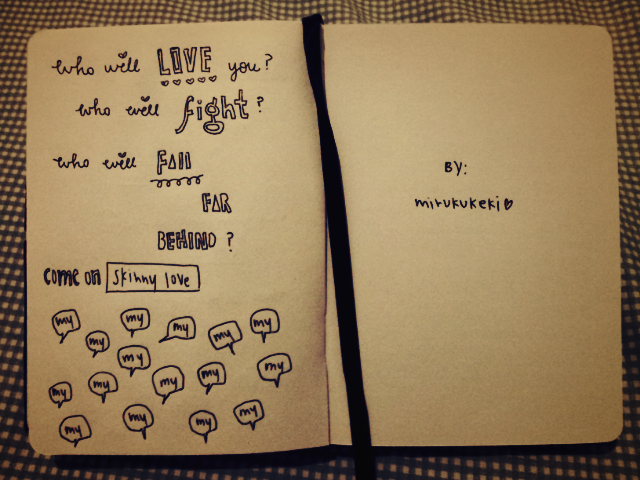 who will LOVE you?
who will fight?
who will FALL
FAR
BEHIND?
come on skinny love
my my my my my
my my
my my my my my
my my my my
By:
mirukukeki